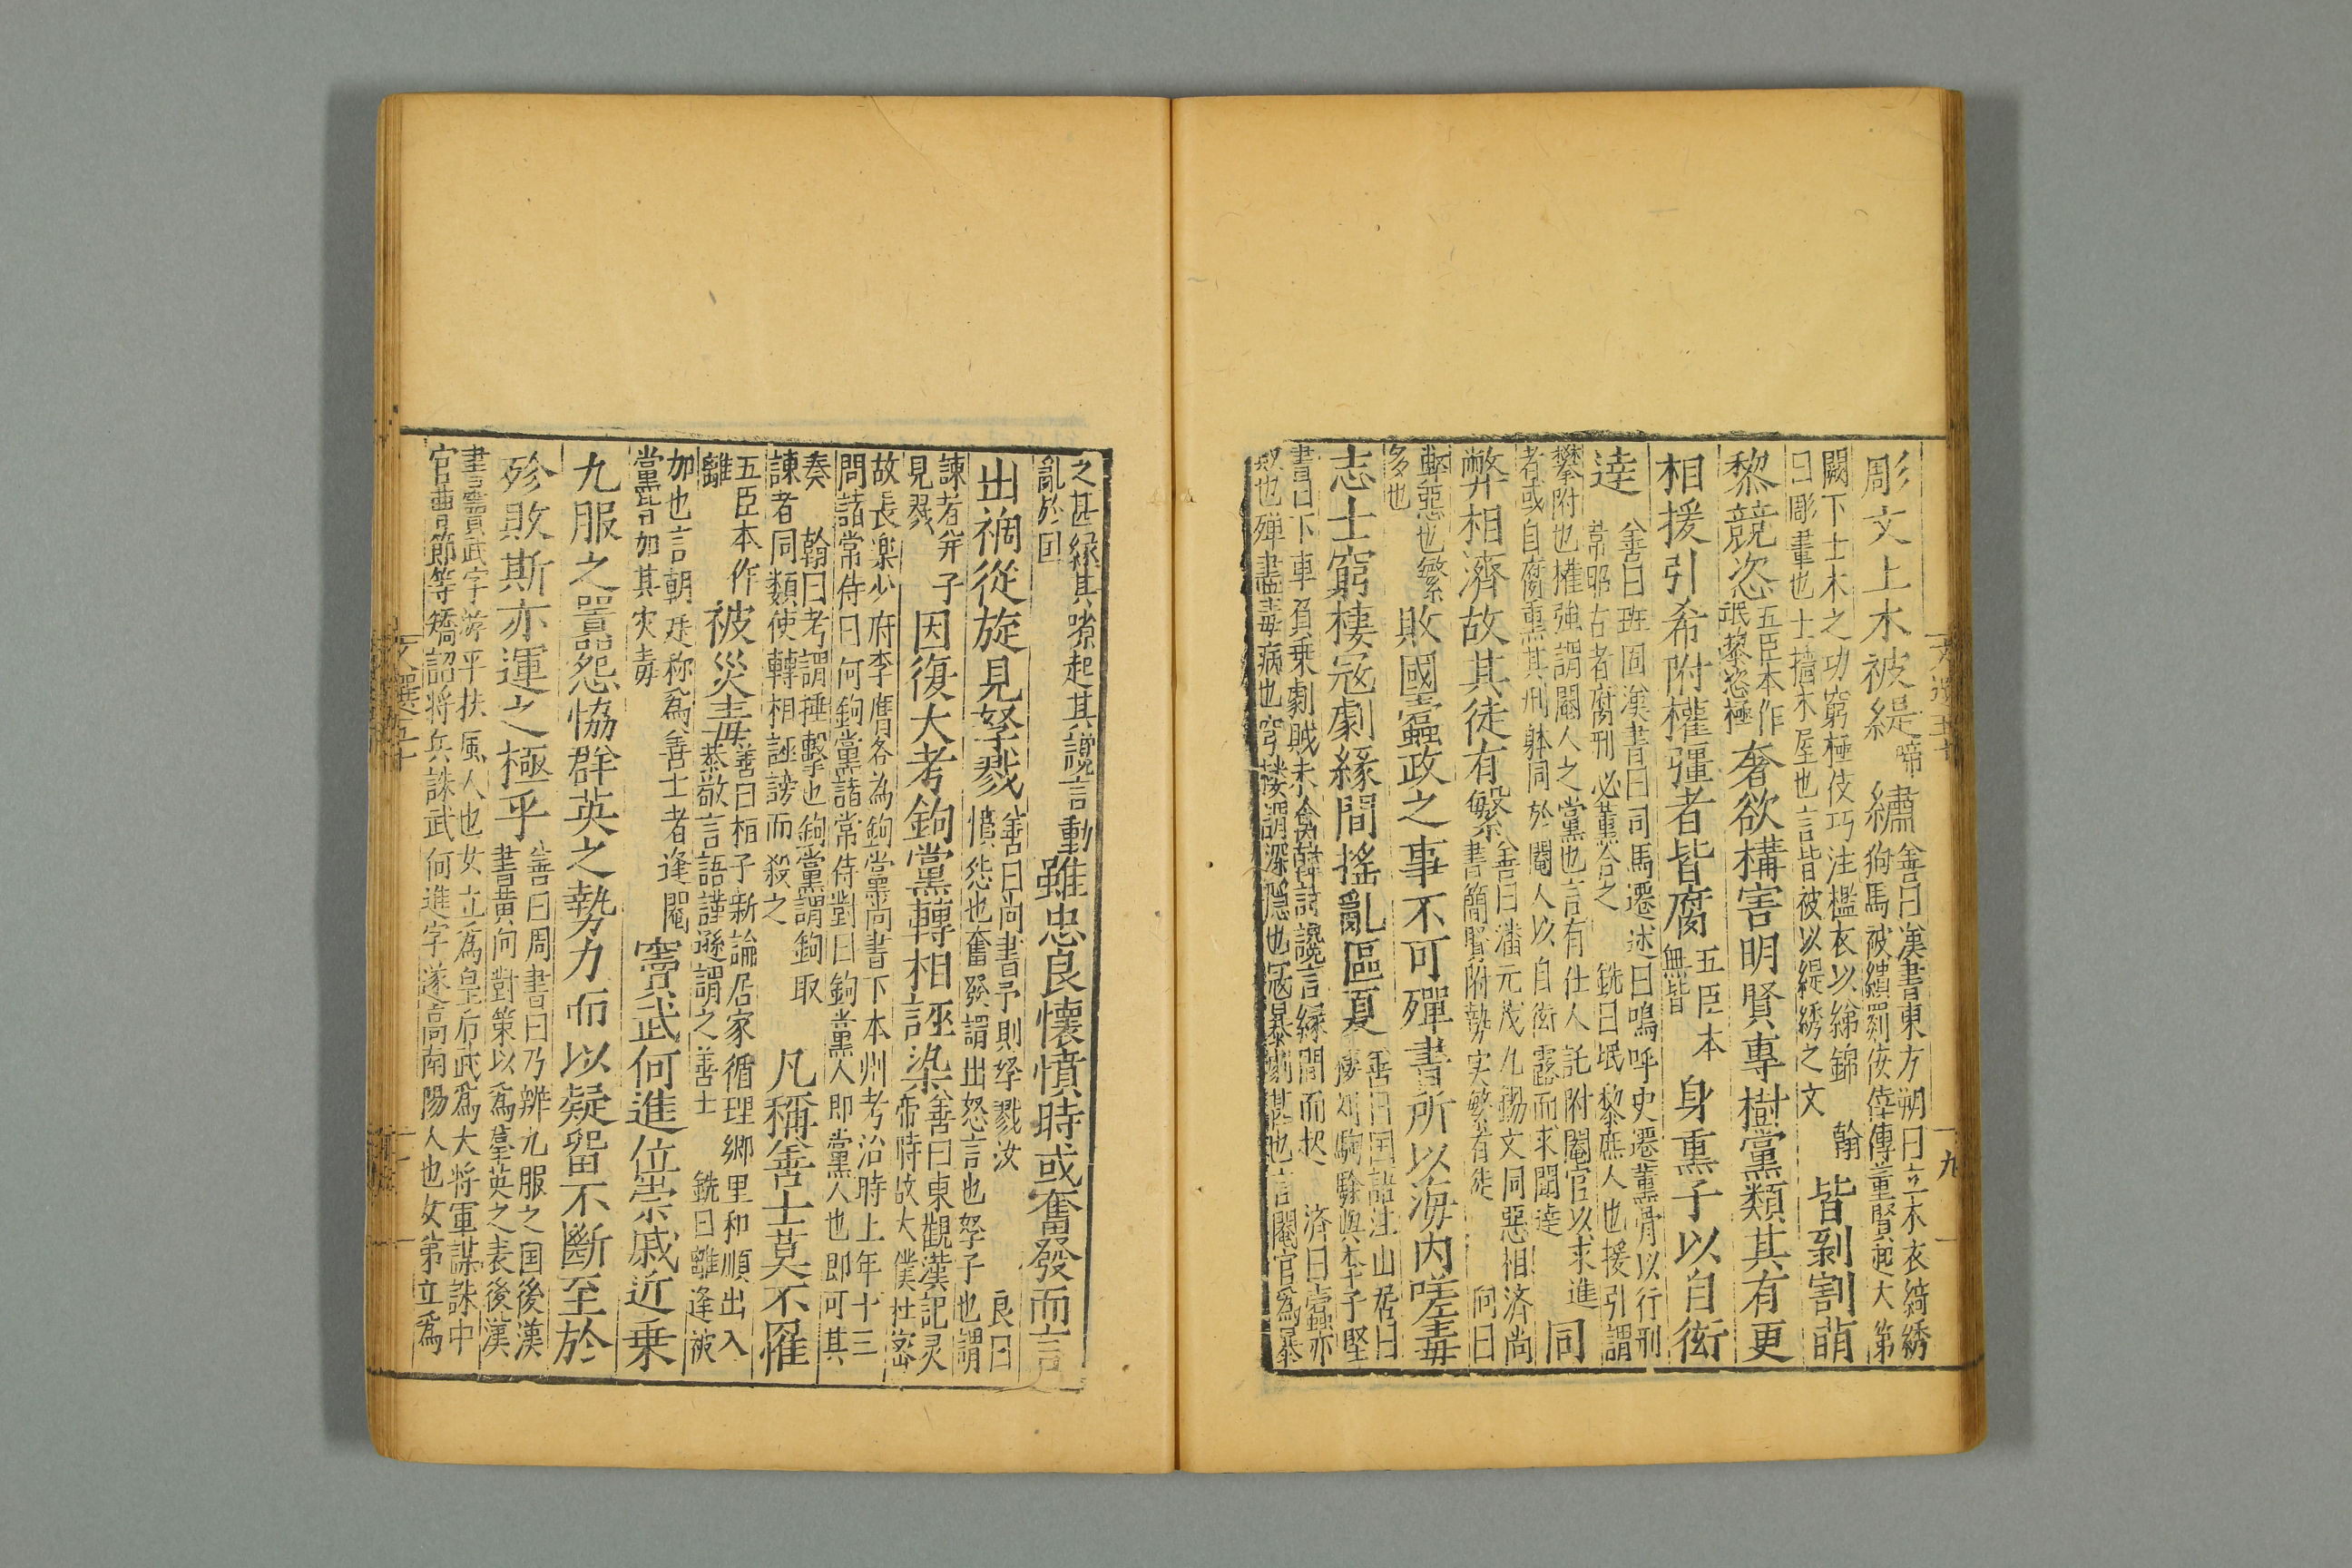 彫文上木被緹啼繡善曰漢書東方朔曰土木衣綺綉
狗馬被繢罽佞倖傳董賢起大第
闕下土木之功窮極伎巧注檻衣以綈錦翰
曰彫畫也土擅木屋也言皆被以緹綉之文皆剝割萌
黎競恣五臣本作
氓黎恣極奢欲構害明賢專樹黨類其有更
相援引希附權彊者皆腐五臣本
無皆身熏子以自衒
達善曰班固漢書曰司馬遷述曰嗚呼史遷薰骨以行刑
韋昭古者腐刑必薰合之銑曰氓黎庶人也援引謂
攀附也權強謂閹人之黨也言有仕人託附閹官以求進
者或自腐熏其刑躰同於閹人以自衒露而求聞達同
弊相濟故其徒有繁善曰潘元茂九錫文同惡相济尚
書簡賢附勢实繁有徒向曰
弊惡也繁
多也敗國蠹政之事不可殫書所以海内嗟毒
志士窮棲冦劇緣間搖亂區夏善曰国語注山居曰
棲刘駒駼與李子堅
書曰下車負乗劇賊未禽韓詩讒言緣間而起济曰蠹亦
敗也殫盡毒病也窮棲謂深隱也冦暴劇甚也言閹官爲暴
之甚緣其隙起其讒言動
亂於国雖忠良懷憤時或奮發而言
出禍從旋見孥戮善曰尚書予則孥戮汝良曰
憤怨也奮發謂出怒言也孥子也謂
諫者并子
見戮因復大考鉤黨轉相誣染善曰東觀漢記灵
帝時故大僕杜宻
故長楽少府李膺各為鉤黨尚書下本州考治時上年十三
問諸常侍曰何鉤黨諸常侍對曰鉤黨人即黨人也即可其
奏翰曰考謂捶擊也鉤黨謂鉤取
諫者同類使轉相誣謗而殺之凡稱善士莫不罹
五臣本作
離被災毒善曰桓子新論居家循理郷里和順出入
恭敬言語謹遜謂之善士銑曰離逢被
加也言朝廷称爲善士者逢閹
黨皆加其灾毒竇武何進位崇戚近乗
九服之嚣怨恊群英之勢力而以疑留不斷至於
殄敗斯亦運之極乎善曰周書曰乃辨九服之国後漢
書黄向對策以爲羣英之表後漢
書竇武字游平扶风人也女立爲皇后武爲大将軍謀誅中
官曹節等矯詔将兵誅武何進字遂高南陽人也女弟立爲